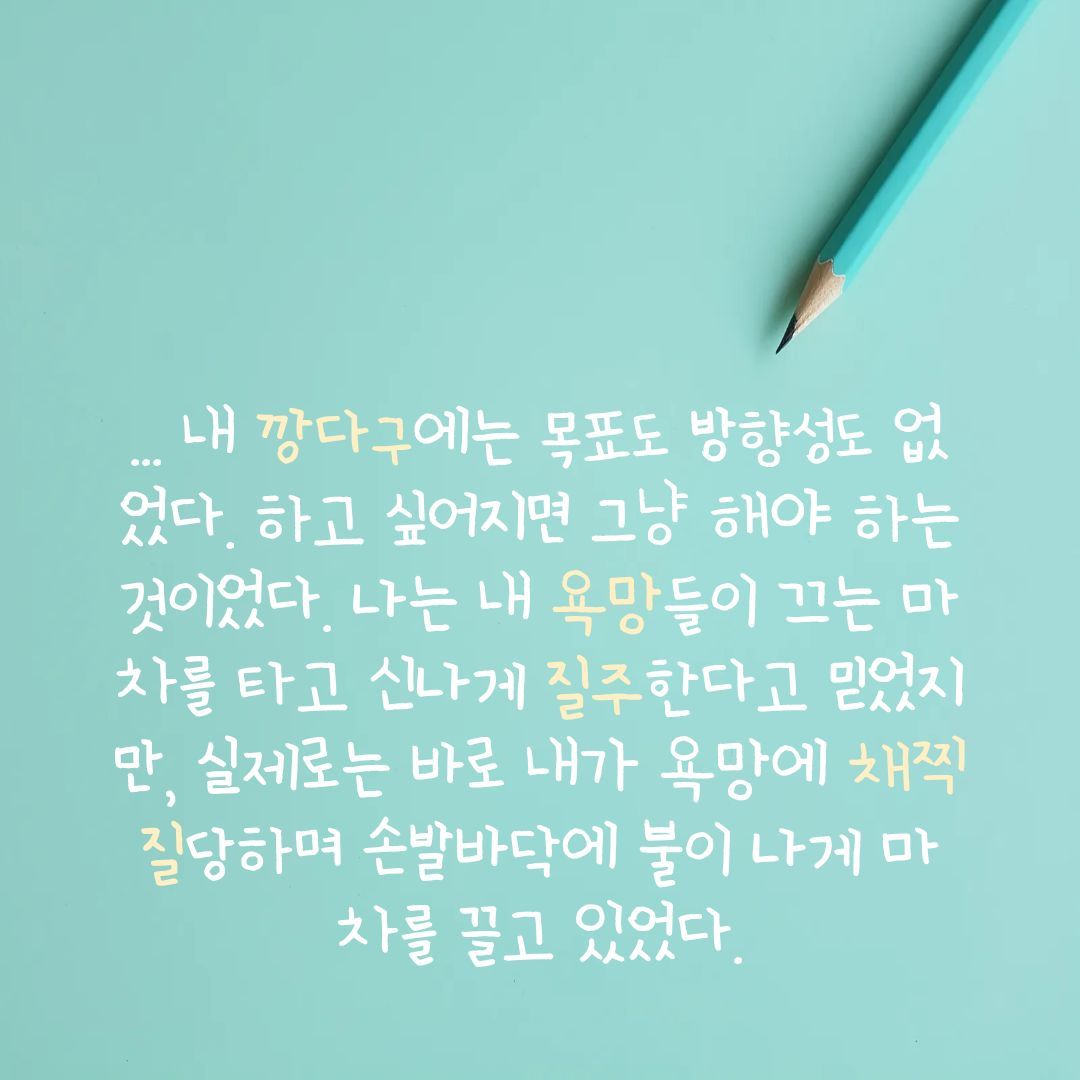 ... 내 깡다구에는 목표도 방향성도 없
었다. 하고 싶어지면 그냥 해야 하는
것이었다. 나는 내 욕망들이 끄는 마
차를 타고 신나게 질주한다고 믿었지
만, 실제로는 바로 내가 욕망에 채찍
질당하며 손발바닥에 불이 나게 마
차를 끌고 있었다.